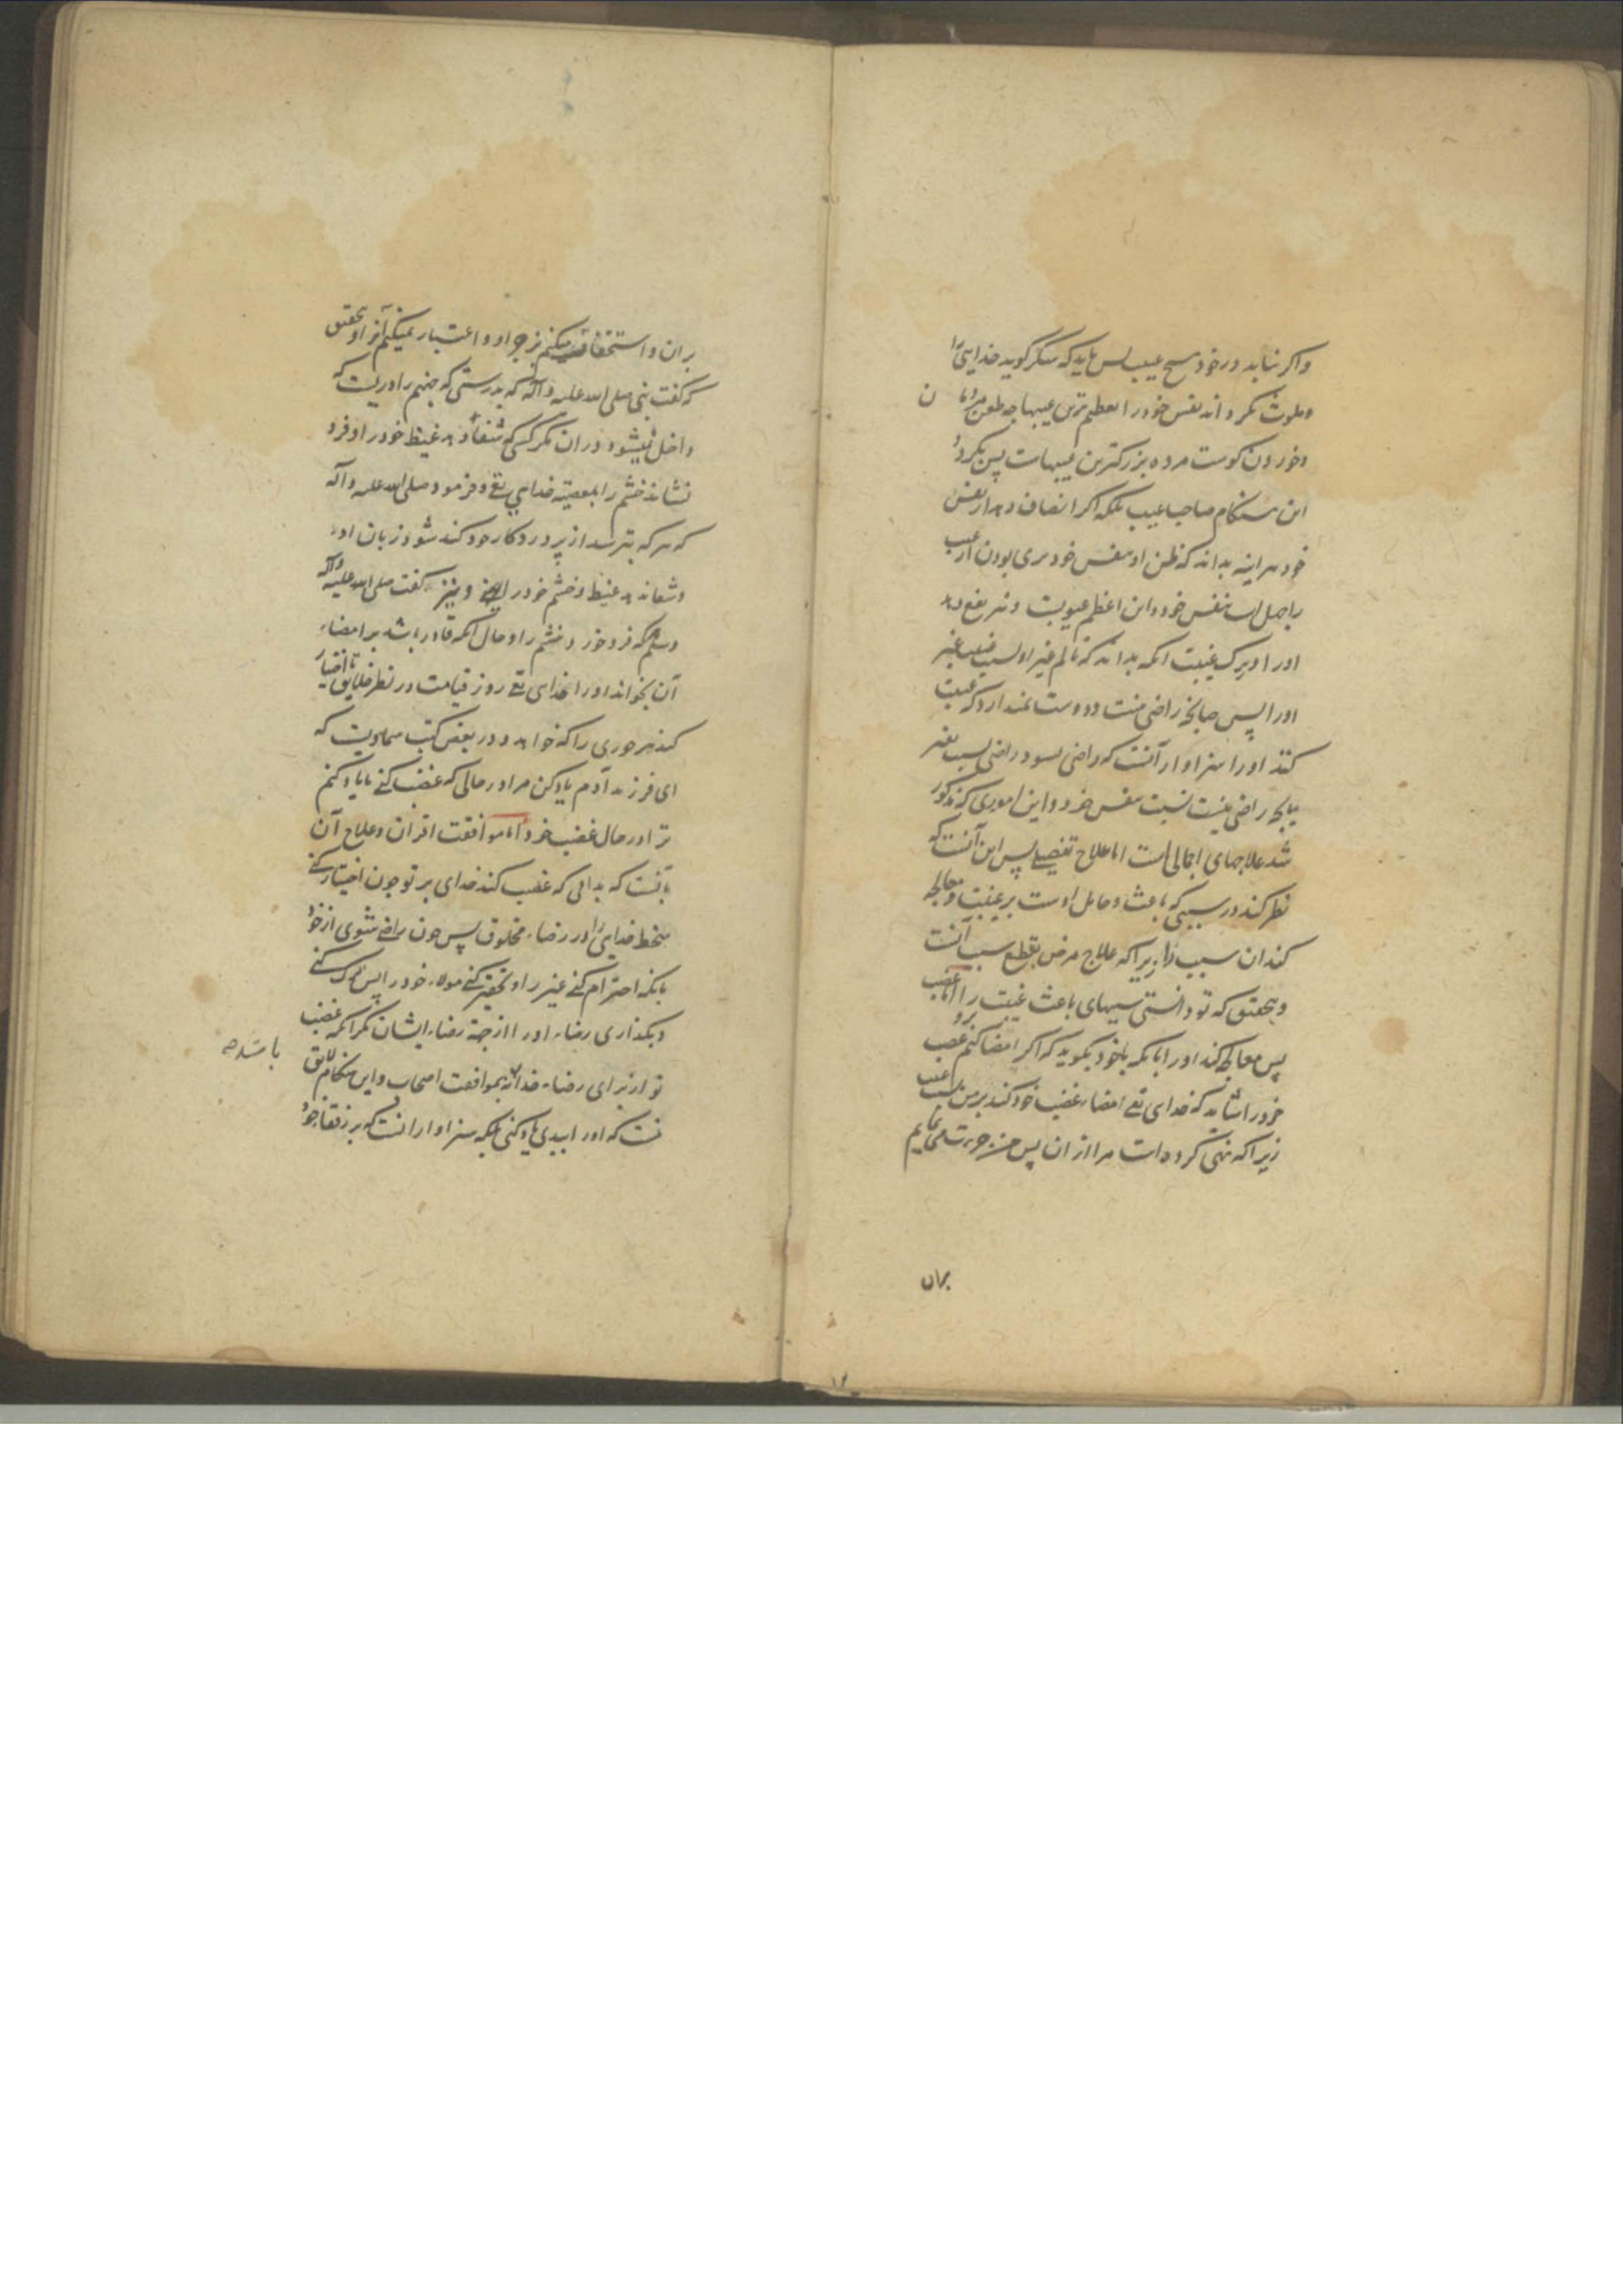 واکر نیابد در خود هیچ عیب پس باید که شکر گوید خدایتعا را
و ملوث نکرداند نفس خود را بعظیم ترین عیبها چه طعن مردمان
و خوردن کوشت مرده بزرکترین عیبهاست پس بکردد
این هنکام صاحب عیب بلکه اکر انصاف دهد از نفس
خود هراینه بداند که ظن او بنفس خود بری بودن از عیب
جهل است بنفس خود و این اعظم عیوبست و نیز نفع دهد
او را در ترک غیبت انکه بداند که تالم غیر او بسبب غیبت
او را پس چنانچه راضی نیست و دوست نمیدارد که غیبت
کنند او را سزاوار آنست که راضی نشود در اضی نسبت بغیر
بانچه راضی نیست نسبت بنفس خود و این اموری که مذکور
شد علاجهای اجمالی است اما علاج تفصیلی پس این آنست که
نظر کند در سببی که باعث و حامل اوست بر غیبت و معالجه
کند ان سبب را زیرا که علاج مرض بقطع سبب آنست
و بتحقیق که تو دانستی سببهای باعث غیبت را اما غضب
پس معالجه کند او را بانکه باخود بکوید که اکر امضا کنم غضب
خود را شاید که خدای تع امضاء غضب خود کند بر من بسبب غیبت
زیرا که نهی کرده است مرا از ان پس من جرءت مینمایم
بران
بران و استخفاف میکنم زجر او و اعتبار نمیکنم آنرا و بتحقیق
که گفت نبی صلی الله علیه و آله که بدرستی که جهنم را دریست که
داخل نمیشود دران مکر کسی که شفا دهد غیظ خود را و فرو
نشاند خشم را بمعصیة خدای تع و فرمود صلی الله علیه و آله
که هر که بترسد از پروردکار خود کند شود زبان او
و شفا ندهد غیظ و خشم خود را و نیز گفت صلی الله علیه و آله
وسلم که فرو خورد خشم را و حال انکه قادر باشد بر امضاء
آن بخواند او را خدای تع روز قیامت در نظر خلایق تا اختیار
کند هر حوری را که خواهد و در بعض کتب سماویست که
ای فرزند آدم یاد کن مرا در حالی که غضب کنی تا یاد کنم
ترا در حال غضب خود اما موافقت اقران و علاج آن
بآنست که بدانی که غضب کند خدای بر تو چون اختیار کنی
سخط خدای را در رضاء مخلوق پس چون راضی شوی از خود
بانکه احترام کنی غیر را و تحقیر کنی مولاء خود را پس ترک کنی
و بکذاری رضاء او را از جهة رضاء ایشان مکر انکه غضب
تو از برای رضاء خدا نه بموافقت اصحاب و این هنکام لایق باشد صح
نیست که او را ببدی یاد کنی بلکه سزاوار انست که بر رفقا خود